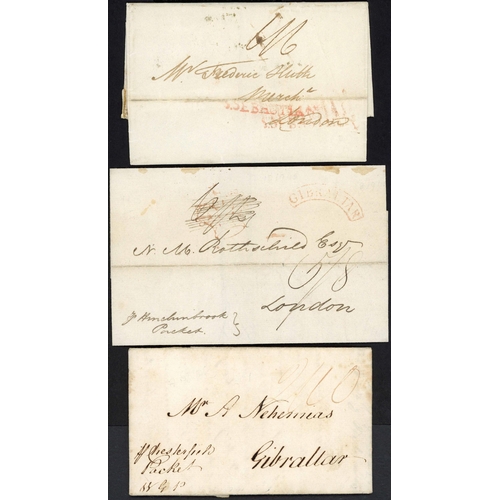 6/6
Mr Frederic Huth
Mercht
London
GIBRALTAR
N. M. Rothschild Esqr
6/8
London
p Hinchinbrook
Packet
Mr A Nehemias
Gibraltar
p Chesterfield
Packet